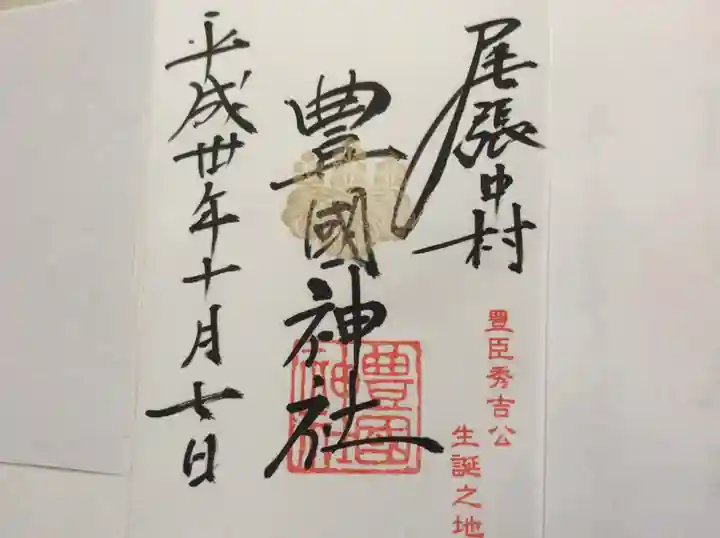 尾張中村
豊臣秀吉公
生誕之地
豊國神社
豊國
神社
平成卅年十月七日